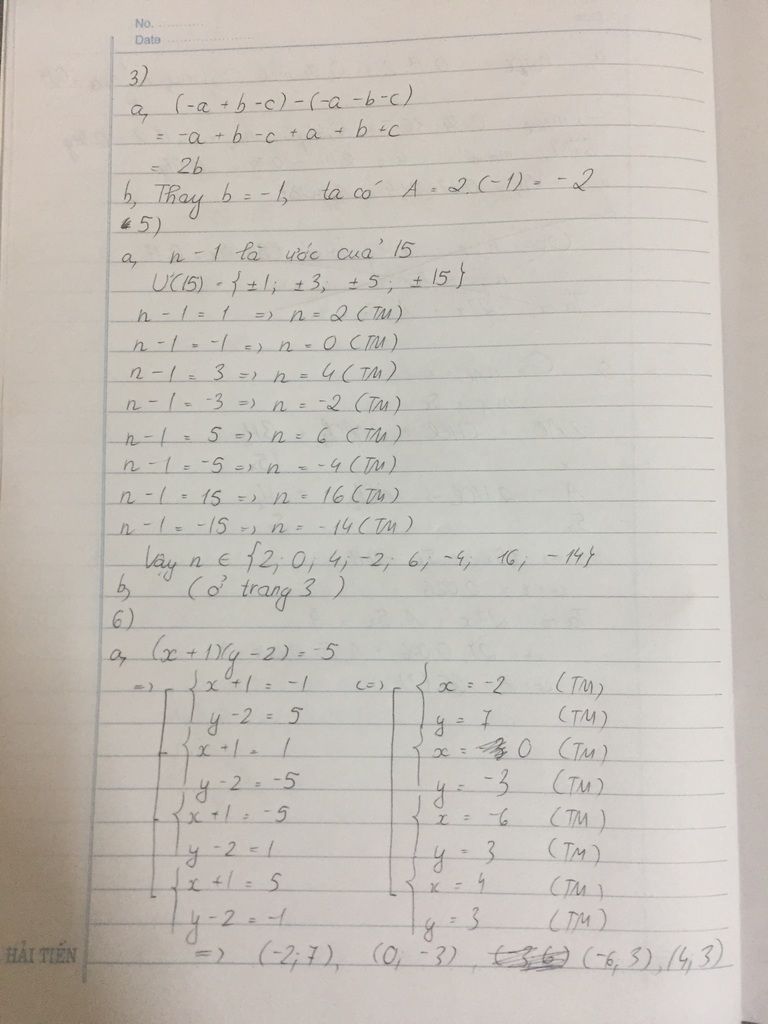 No.
Date
3)
a, (-a + b - c) - (-a - b - c)
= -a + b - c + a + b + c
= 2b
b, Thay b = -1, ta có A = 2.(-1) = -2
5)
a, n - 1 là ước của 15
Ư(15) = {±1; ±3; ±5; ±15}
n - 1 = 1 => n = 2 (TM)
n - 1 = -1 => n = 0 (TM)
n - 1 = 3 => n = 4 (TM)
n - 1 = -3 => n = -2 (TM)
n - 1 = 5 => n = 6 (TM)
n - 1 = -5 => n = -4 (TM)
n - 1 = 15 => n = 16 (TM)
n - 1 = -15 => n = -14 (TM)
Vậy n ∈ {2; 0; 4; -2; 6; -4; 16; -14}
b, (ở trang 3)
6)
a, (x + 1)(y - 2) = -5
=> [ { x + 1 = -1 <=> [ { x = -2 (TM)
y - 2 = 5 y = 7 (TM)
{ x + 1 = 1 { x = 0 (TM)
y - 2 = -5 y = -3 (TM)
{ x + 1 = -5 { x = -6 (TM)
y - 2 = 1 y = 3 (TM)
{ x + 1 = 5 { x = 4 (TM)
y - 2 = -1 y = 3 (TM)
=> (-2; 7), (0; -3), (-6; 3), (4; 3)
HẢI TIẾN